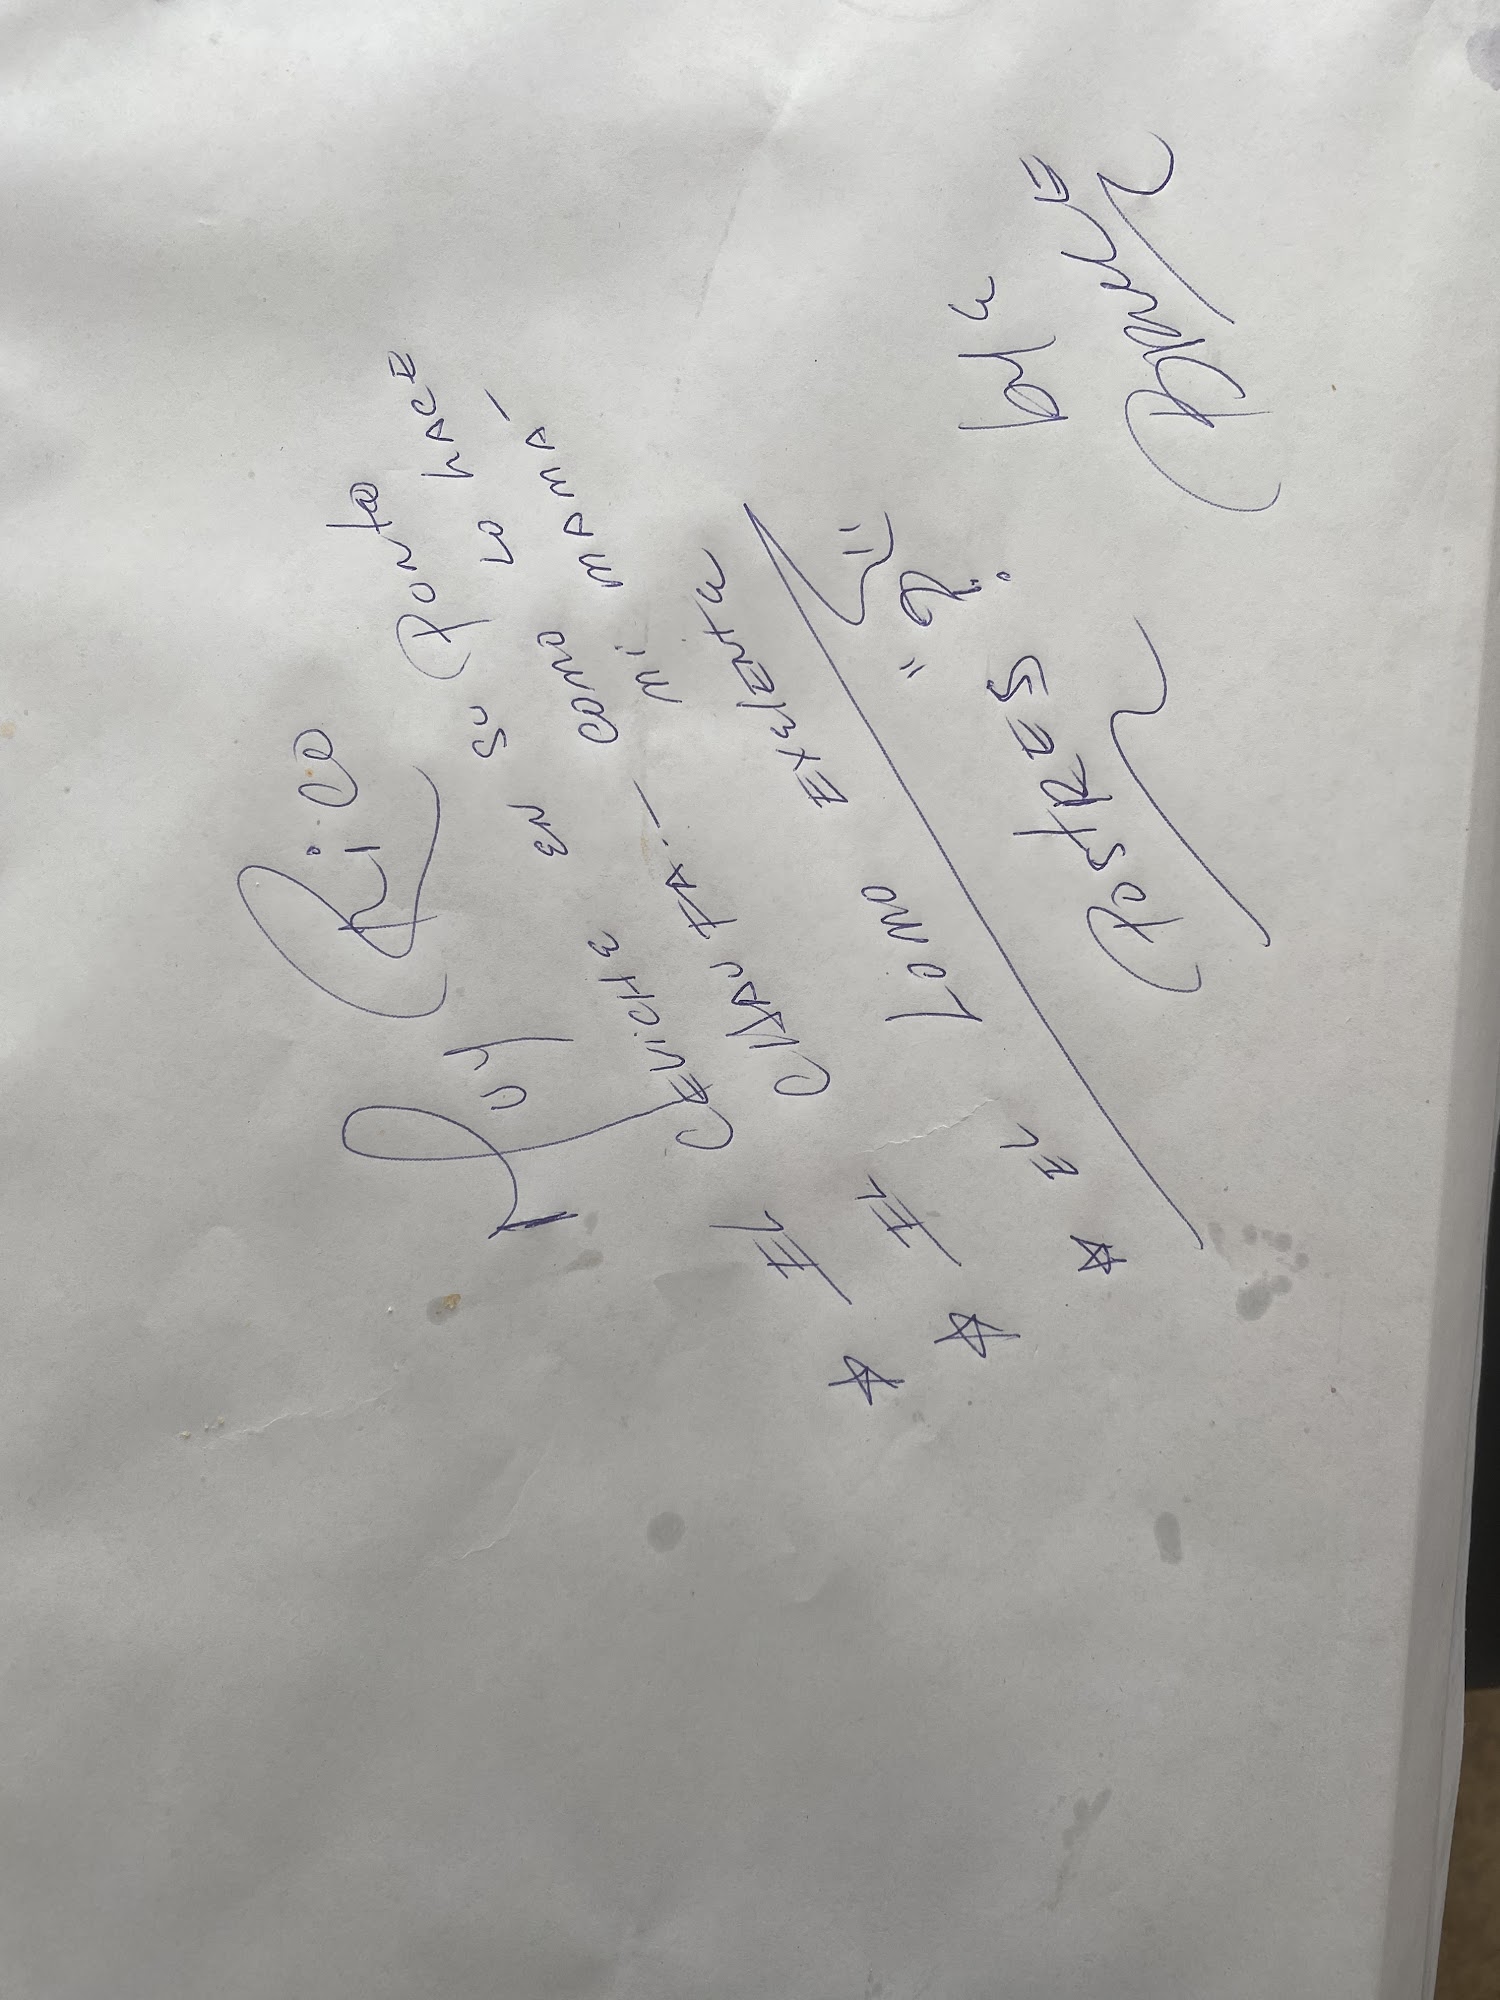 MUY RICO
☆ EL CEVICHE EN SU PUNTO
☆ EL CHAUFA.- COMO LO HACE
MI MAMA-
☆ EL LOMO EXELENTE
POSTRES "?"
bye